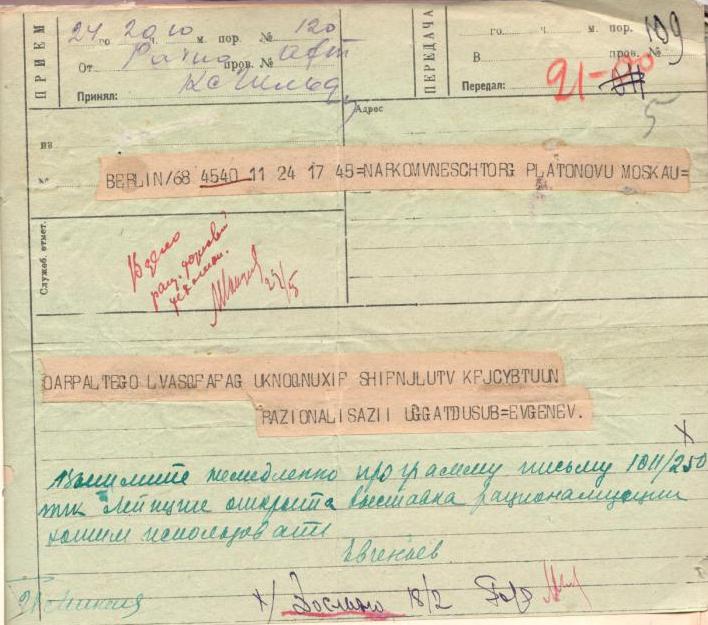 ПРИЕМ
24 го 20 ч. 10 м. пор. № 120
От пров. №
Принял:
ПЕРЕДАЧА
го ч. м. пор. 109
В пров. №
Передал:
5
Адрес
из
№
BERLIN/68 4540 11 24 17 45=NARKOMVNESCHTORG PLATONOVU MOSKAU=
Служеб. отмет.
В дело
рац.
OARPALTEGO LVASQFAFAG UKNOQNUXIF SHIFNJLUTV KFJCYBTUUN
RAZIONALISAZII UGGATDUSUB=EVGENEV.
х
Вышлите немедленно программу письму 1011/250
тчк Лейпциге открыта выставка рационализации
хотим использовать
Евгеньев
х/ Выслано 18/2